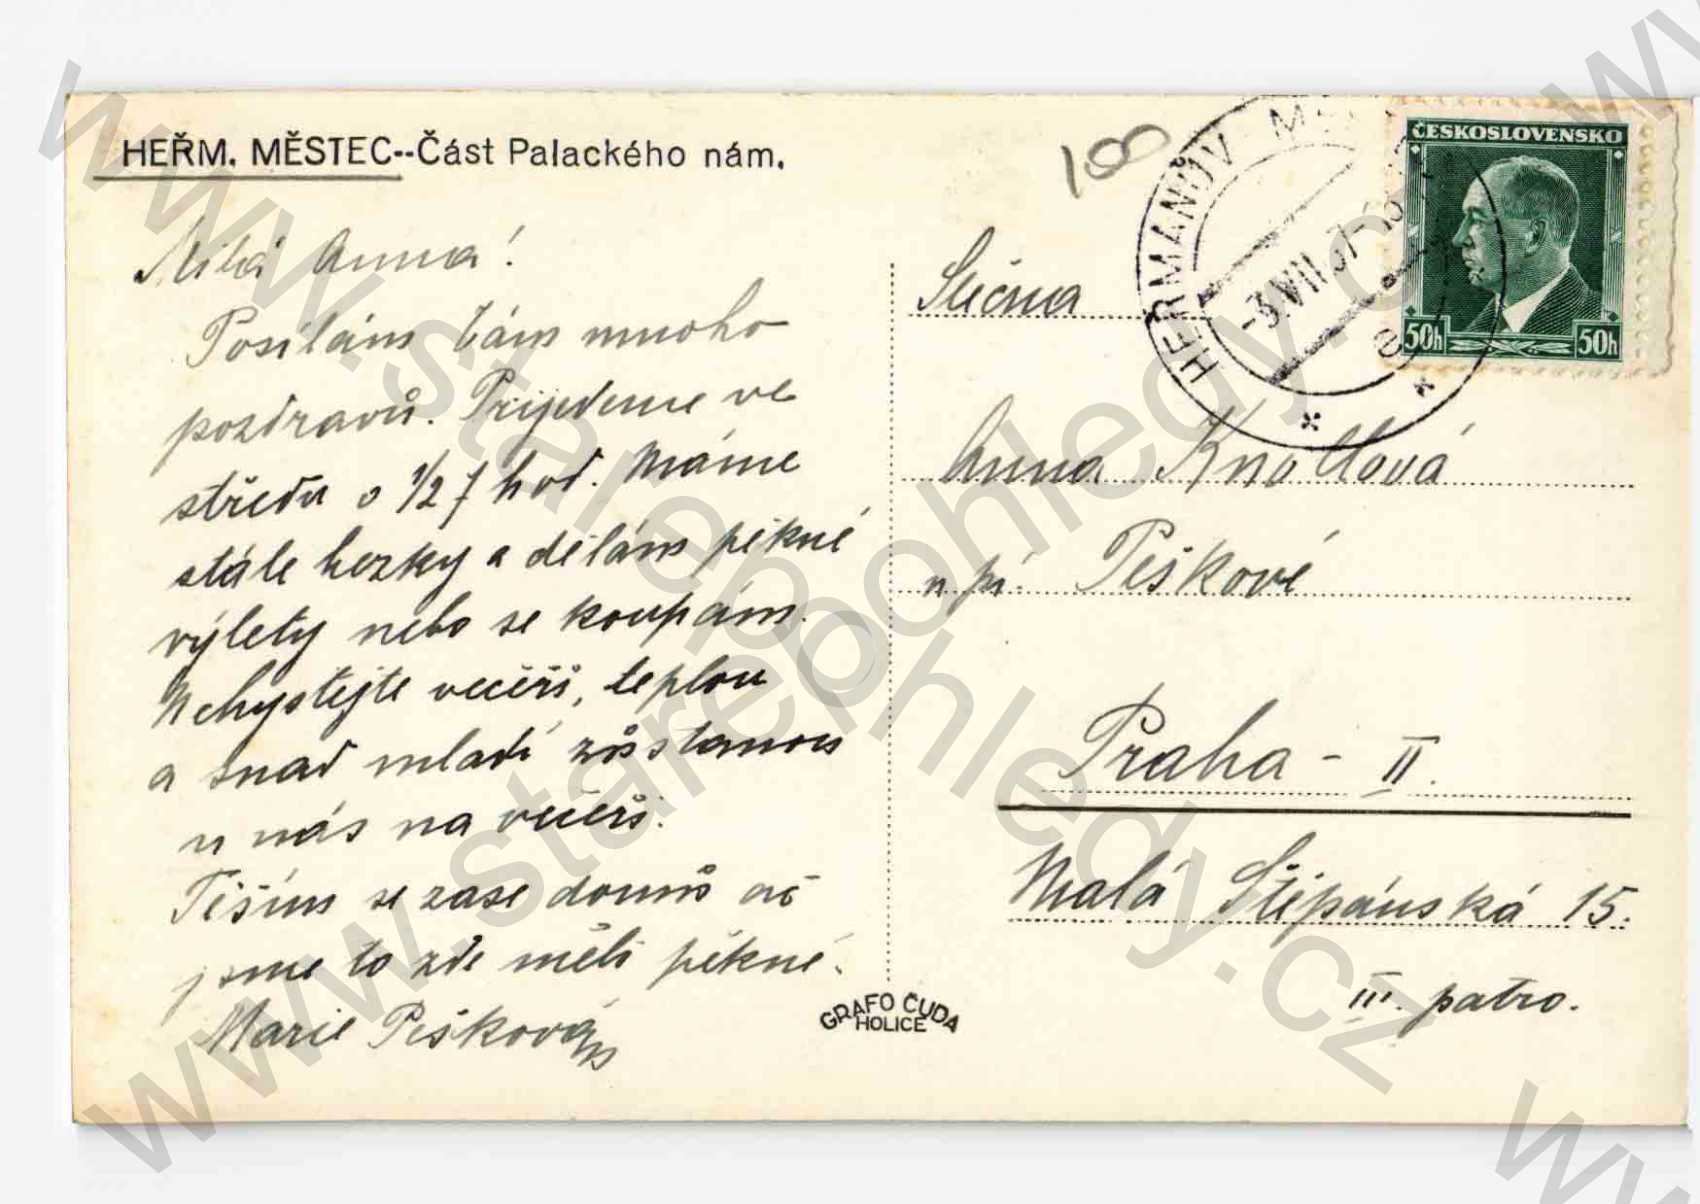 HEŘM. MĚSTEC--Část Palackého nám.
100
HEŘMANŮV MĚ
-3.VIII.37-18
ČESKOSLOVENSKO
50h 50h
Milá Anna!
Posílám Vám mnoho
pozdravů. Přijedeme ve
středu o 1/2 7 hod. Máme
stále hezky a dělám pěkné
výlety nebo se koupám.
Nchystejte večeři, teplou
a snad mladí zůstanou
u nás na večeři.
Těším se zase domů ač
jsme to zde měli pěkné.
Marie Pešková
Slečna
Anna
n pí. Peškové
Praha - II.
Malá Štěpánská 15.
III. patro.
GRAFO ČUDA
HOLICE
www.starepohledy.cz
www.starepohledy.cz